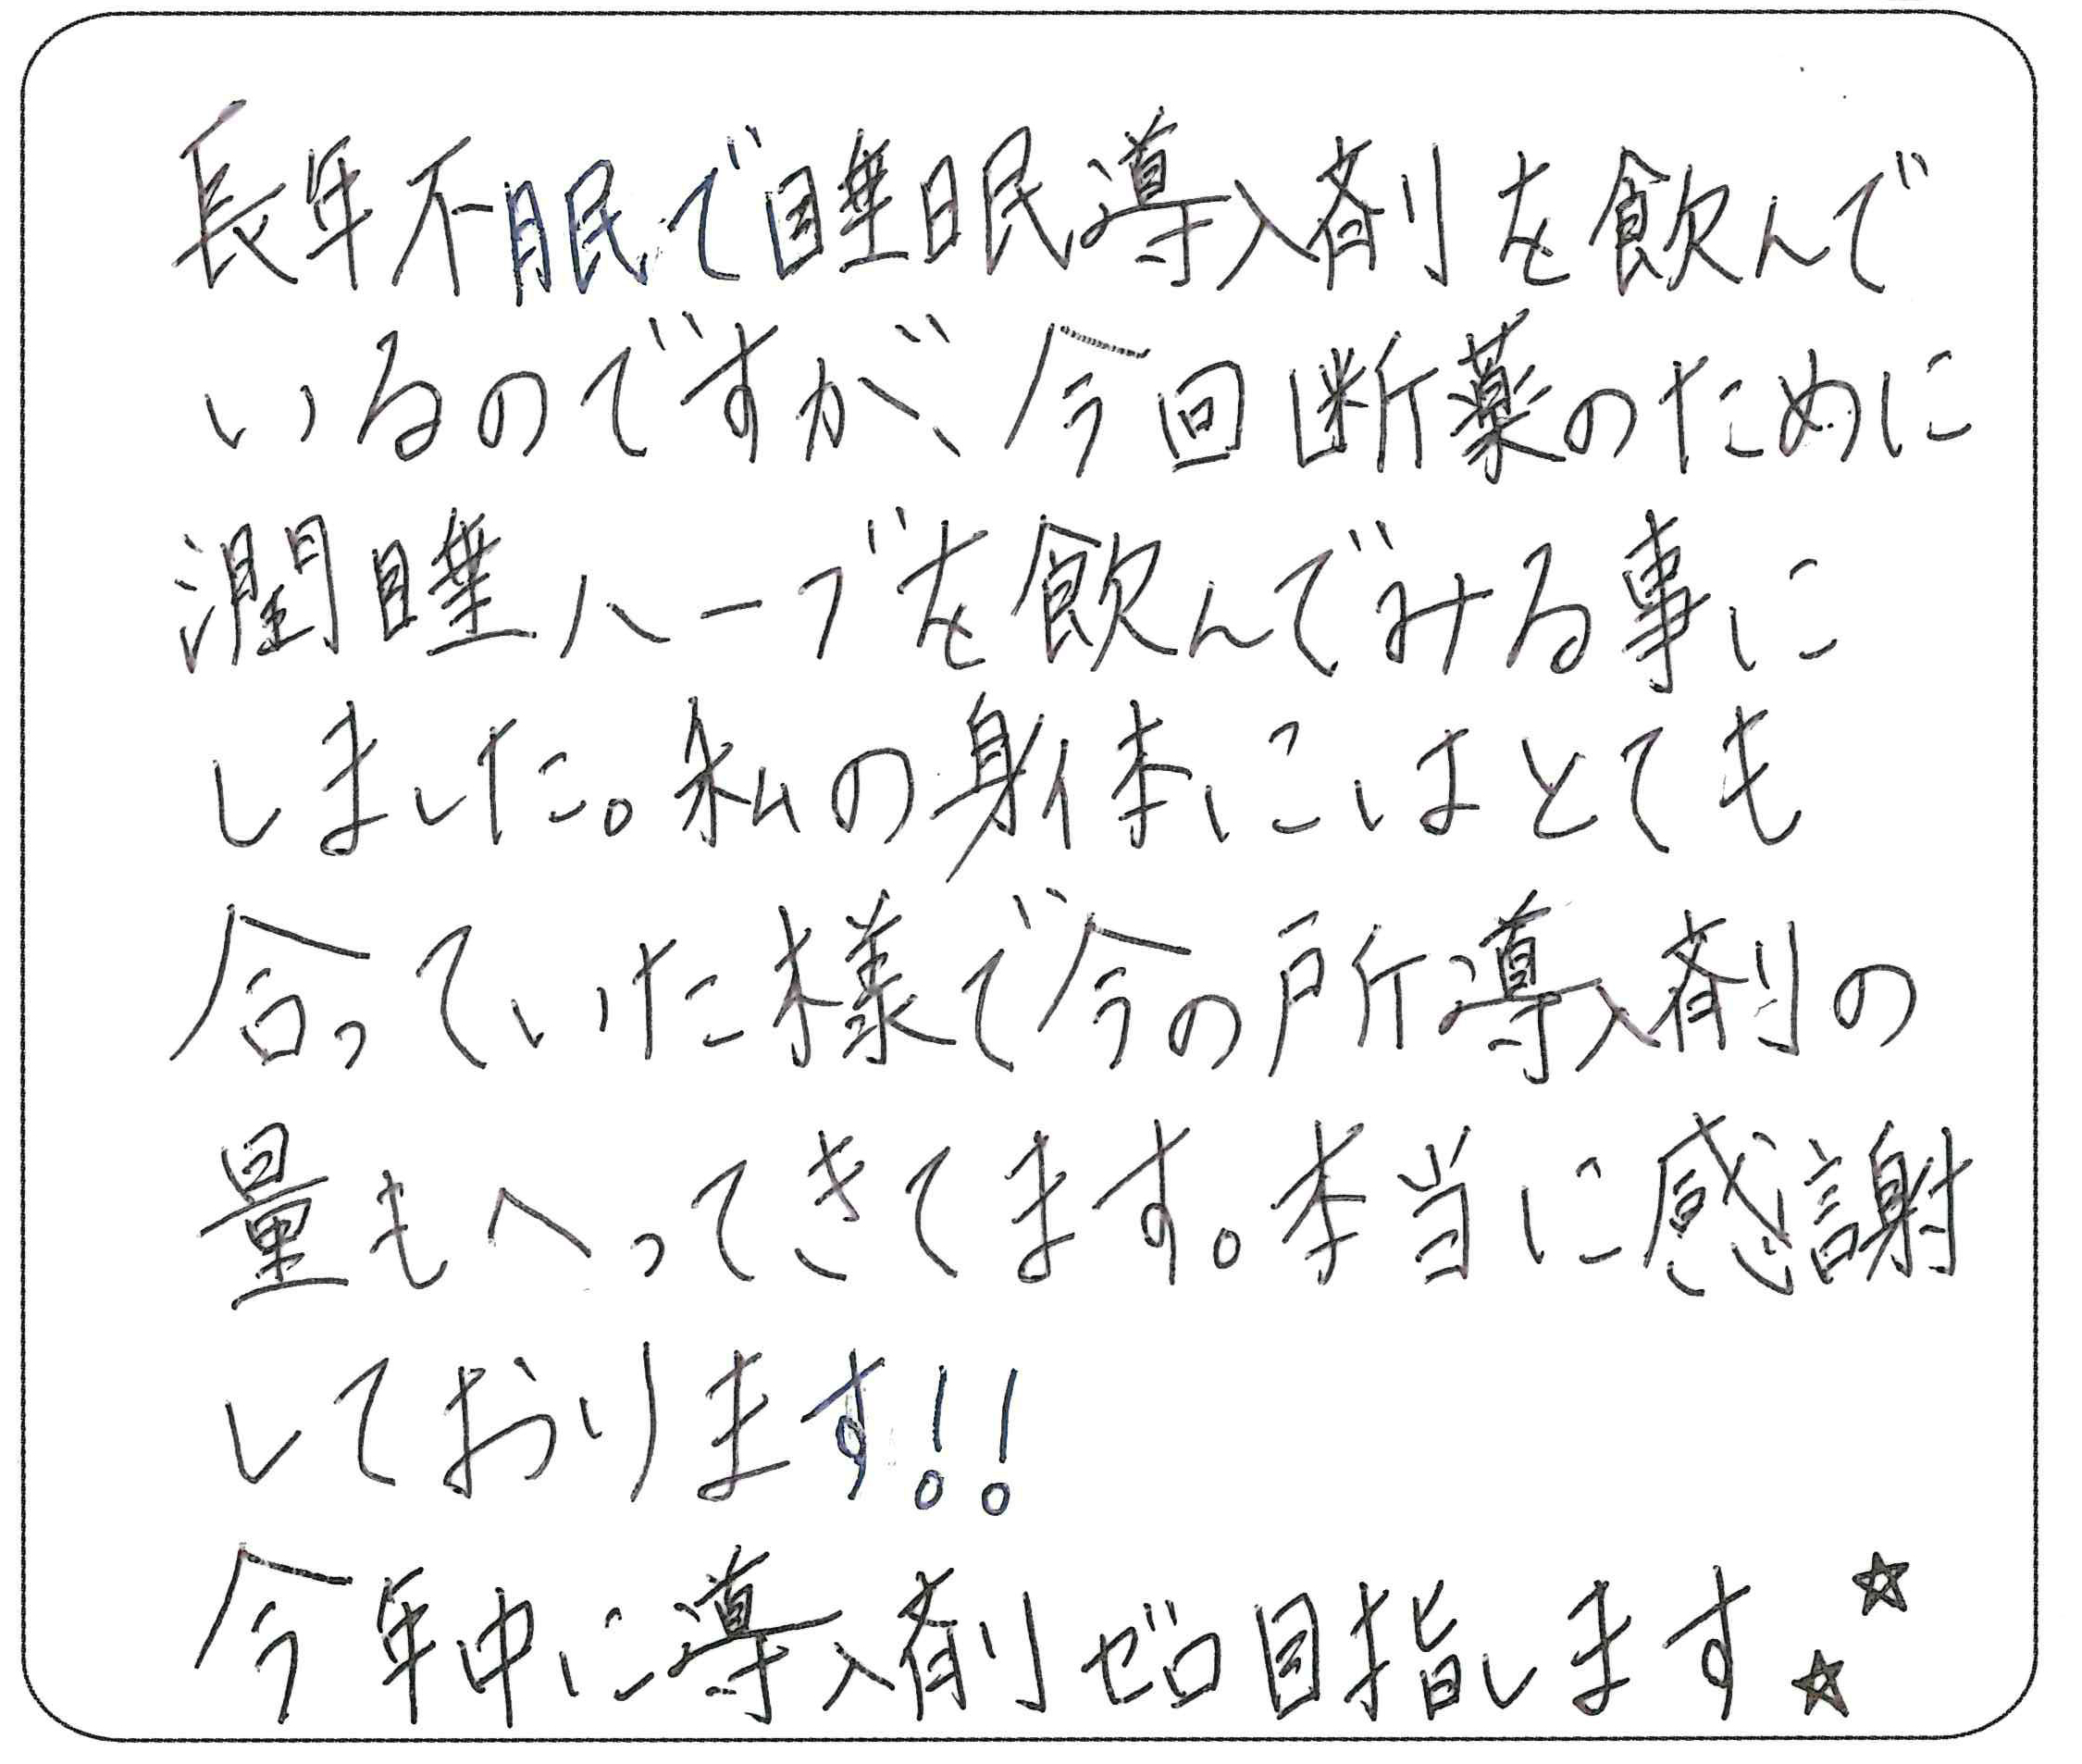 長年不眠で睡眠導入剤を飲んで
いるのですが、今回断薬のために
潤睡ハーブを飲んでみる事に
しました。私の身体にはとても
合っていた様で今の所導入剤の
量もへってきてます。本当に感謝
しております!!
今年中に導入剤ゼロ目指します☆☆